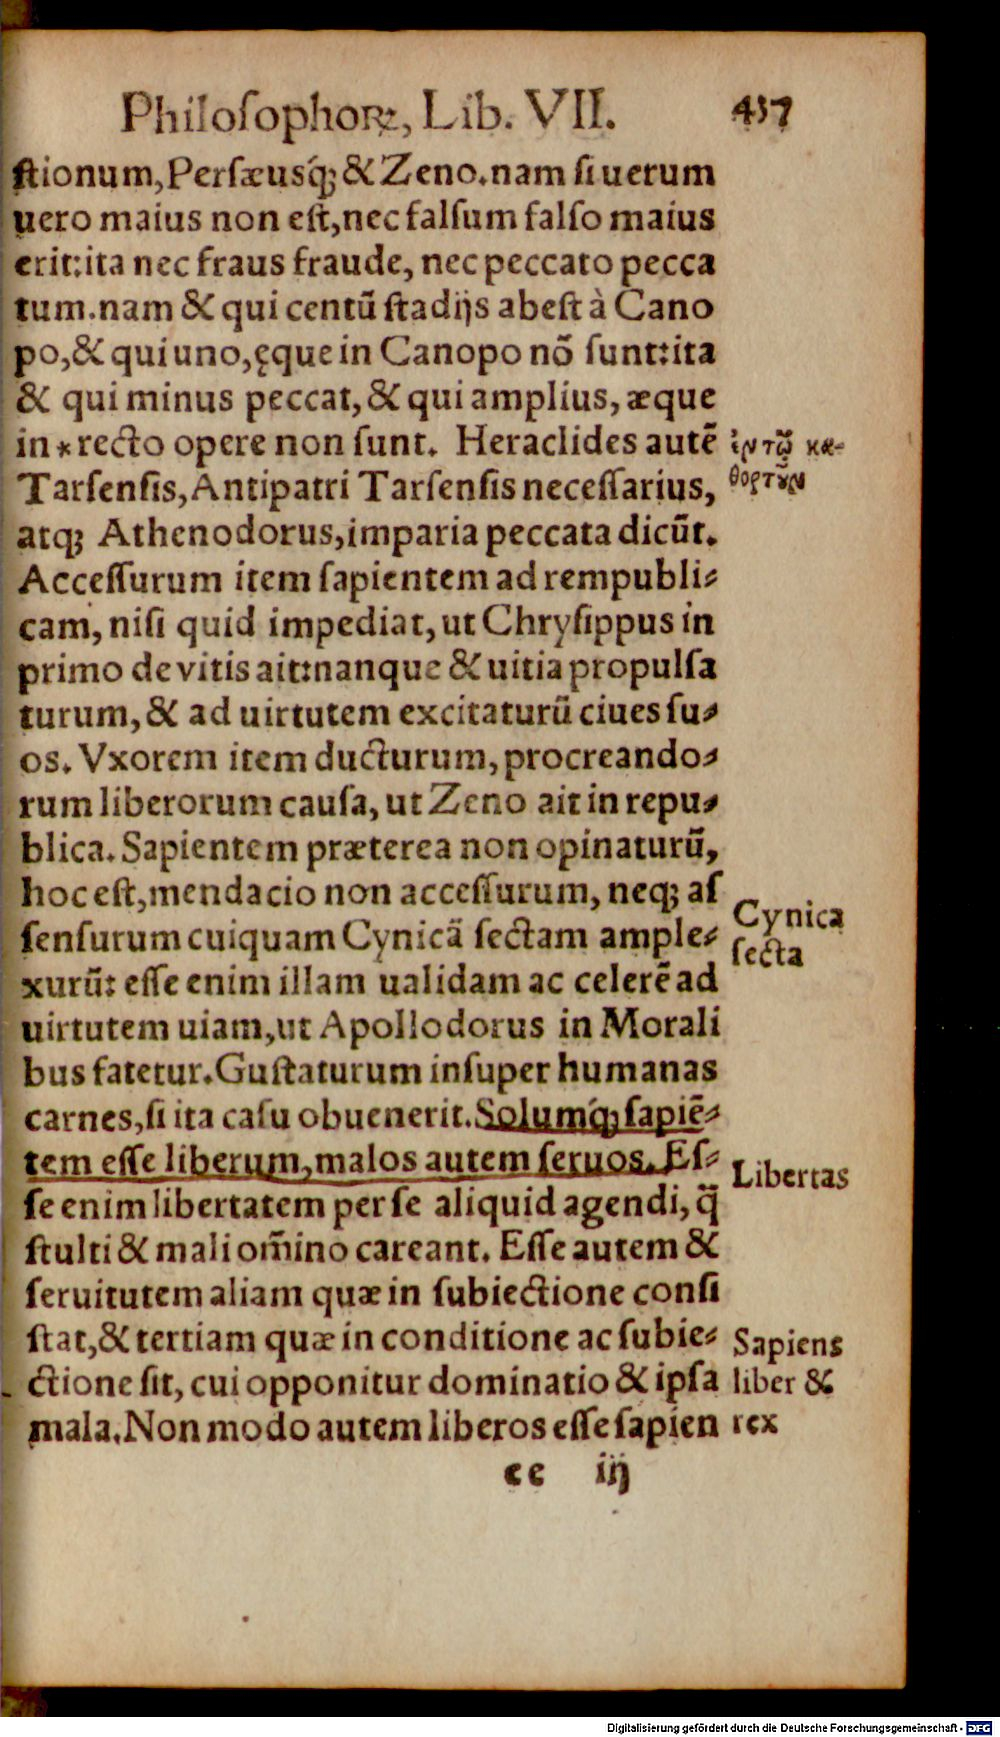 Philoſophoꝝ, Lib. VII. 437
ſtionum, Perſæusq́ꝫ & Zeno. nam ſi uerum
uero maius non eſt, nec falſum falſo maius
erit: ita nec fraus fraude, nec peccato pecca
tum. nam & qui centũ ſtadijs abeſt à Cano
po, & qui uno, ęque in Canopo nõ ſunt: ita
& qui minus peccat, & qui amplius, æque
in * recto opere non ſunt. Heraclides autẽ
ἐν τῷ κα-
θορτοῦν
Tarſenſis, Antipatri Tarſenſis neceſſarius,
atqꝫ Athenodorus, imparia peccata dicũt.
Acceſſurum item ſapientem ad rempubli-
cam, niſi quid impediat, ut Chryſippus in
primo de vitis ait: nanque & uitia propulſa
turum, & ad uirtutem excitaturũ ciues ſu-
os. Vxorem item ducturum, procreando-
rum liberorum cauſa, ut Zeno ait in repu-
blica. Sapientem præterea non opinaturũ,
hoc eſt, mendacio non acceſſurum, neqꝫ aſ
ſenſurum cuiquam Cynicã ſectam ample-
Cynica
ſecta
xurũ: eſſe enim illam ualidam ac celerẽ ad
uirtutem uiam, ut Apollodorus in Morali
bus fatetur. Guſtaturum inſuper humanas
carnes, ſi ita caſu obuenerit. Solumq́ꝫ ſapiẽ-
tem eſſe liberum, malos autem ſeruos. Eſ-
Libertas
ſe enim libertatem per ſe aliquid agendi, q̃
ſtulti & mali om̃ino careant. Eſſe autem &
ſeruitutem aliam quæ in ſubiectione conſi
ſtat, & tertiam quæ in conditione ac ſubie-
ctione ſit, cui opponitur dominatio & ipſa
mala. Non modo autem liberos eſſe ſapien
Sapiens
liber &
rex
ee iij
Digitalisierung gefördert durch die Deutsche Forschungsgemeinschaft - DFG